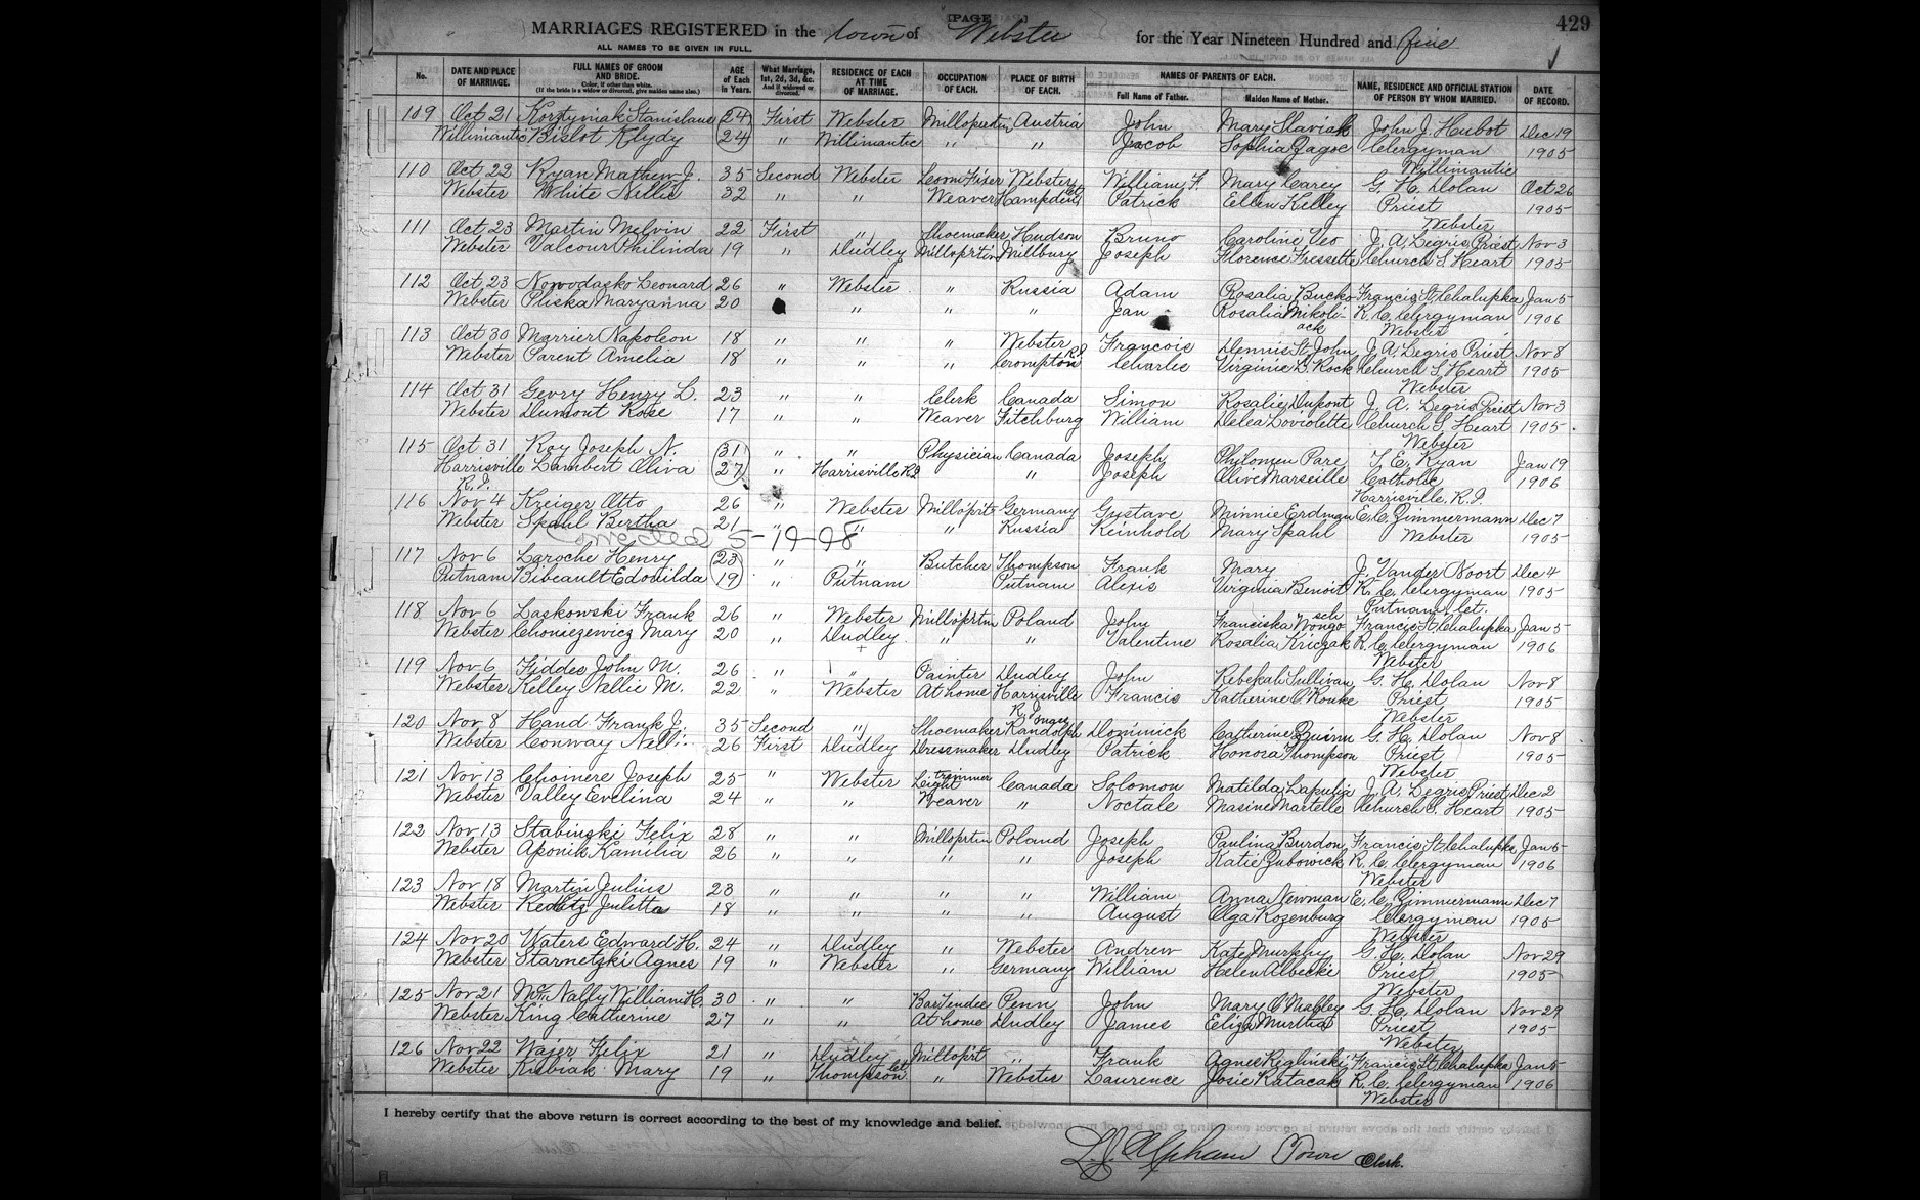 [PAGE ]
429
MARRIAGES REGISTERED in the town of Webster for the Year Nineteen Hundred and five
ALL NAMES TO BE GIVEN IN FULL.
No. DATE AND PLACE OF MARRIAGE. FULL NAMES OF GROOM AND BRIDE. Color, if other than white. (If the bride is a widow or divorced, give maiden name also.) AGE of Each in Years. What Marriage, 1st, 2d, 3d, &c. And if widowed or divorced. RESIDENCE OF EACH AT TIME OF MARRIAGE. OCCUPATION OF EACH. PLACE OF BIRTH OF EACH. NAMES OF PARENTS OF EACH. Full Name of Father. Maiden Name of Mother. NAME, RESIDENCE AND OFFICIAL STATION OF PERSON BY WHOM MARRIED. DATE OF RECORD.
109 Oct 21 Stanislaus 24 First Webster Austria John Mary John J. Dec 19
Willimantic 24 " Willimantic " " Jacob Sophia Clergyman 1905
Willimantic
110 Oct 22 Ryan Mathew J. 35 Second Webster Loom Fixer Webster William F. Mary Carey G. H. Dolan Oct 26
Webster White Nellie 32 " " Weaver Patrick Ellen Kelley Priest 1905
Webster
111 Oct 23 Martin Melvin 22 First " Shoemaker Hudson Bruno Caroline Veo J. A. Legris Priest Nov 3
Webster Valcour Philinda 19 " Dudley Milloprtin Millbury Joseph Florence Fressette Church S Heart 1905
112 Oct 23 Leonard 26 " Webster " Russia Adam Rosalia Francis St. Chalupka Jan 5
Webster Pliska Maryanna 20 " " " Jan Rosalia Mikoli-ack R. C. Clergyman 1906
Webster
113 Oct 30 Marrier Napoleon 18 " " " Webster Francois Dennis St. John J. A. Legris Priest Nov 8
Webster Parent Amelia 18 " " " Crompton R.I Charles Virginie Church S Heart 1905
Webster
114 Oct 31 Gevry Henry L. 23 " " Clerk Canada Simon Rosalie Dupont J. A. Legris Priest Nov 3
Webster Dumont Rose 17 " " Weaver Fitchburg William Delea Loviolette Church S Heart 1905
Webster
115 Oct 31 Roy Joseph N. 31 " " Physician Canada Joseph Philomen Pare T. E. Ryan Jan 19
Harrisville Lambert Oliva 27 " Harrisville R I " Joseph Olive Marseille Catholic 1906
R. I. Harrisville, R. I
116 Nov 4 Kreiger Otto 26 " Webster Milloprtr Germany Gustave Minnie Erdman E. C. Zimmermann Dec 7
Webster Spahl Bertha 21 " " " Russia Reinhold Mary Spahl Webster 1905
117 Nov 6 Laroche Henry 23 " " Butcher Thompson Frank Mary J. Vander Noort Dec 4
Putnam Bibeault Edouilda 19 " Putnam Putnam Alexis Virginia Benoit R. C. Clergyman 1905
Putnam, Ct.
118 Nov 6 Laskowski Frank 26 " Webster Milloprtin Poland John Franciska Francis St. Chalupka Jan 5
Webster Mary 20 " Dudley " " Valentine Rosalia R. C. Clergyman 1906
Webster
119 Nov 6 John M. 26 " " Painter Dudley John Rebekah Sullivan G. H. Dolan Nov 8
Webster Kelley Nellie M. 22 " Webster At home Harrisville R. I Francis Katherine O'Rourke Priest 1905
Webster
120 Nov 8 Hand Frank J. 35 Second " Shoemaker Randolph Dominick Catherine Quinn G. H. Dolan Nov 8
Webster Conway Nelli 26 First Dudley Dressmaker Dudley Patrick Honora Thompson Priest 1905
Webster
121 Nov 13 Choinere Joseph 25 " Webster trimmer Canada Solomon Matilda J. A. Legris Priest Dec 2
Webster Valley Evelina 24 " " Weaver " Noctale Masine Martelle Church S. Heart 1905
122 Nov 13 Stabinski Felix 28 " " Milloprtin Poland Joseph Paulina Burdon Francis St. Chalupka Jan 5
Webster Aponik Kamilia 26 " " " " Joseph Katie Zubowick R. C. Clergyman 1906
Webster
123 Nov 18 Martin Julius 23 " " " " William Anna Newman E. C. Zimmermann Dec 7
Webster Julitta 18 " " " " August Olga Rozenburg Clergyman 1905
Webster
124 Nov 20 Waters Edward H. 24 " Dudley " Webster Andrew Kate Murphy G. H. Dolan Nov 29
Webster Starnetzki Agnes 19 " Webster " Germany William Helen Priest 1905
Webster
125 Nov 21 McNally William H. 30 " " Bartender Penn John Mary G. H. Dolan Nov 29
Webster King Catherine 27 " " At home Dudley James Eliza Murtha Priest 1905
Webster
126 Nov 22 Wajer Felix 21 " Dudley Milloprt " Frank Agnes Francis St. Chalupka Jan 5
Webster Mary 19 " Thompson Ct. " Webster Laurence Josie Katacak R. C. Clergyman 1906
Webster
I hereby certify that the above return is correct according to the best of my knowledge and belief.
Town Clerk.